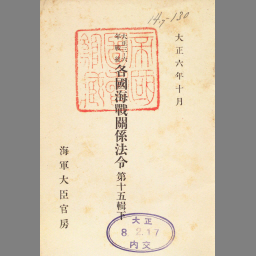 14.7-180
大正六年十月
各國海戰關係法令 第十五輯下
海軍大臣官房
大正
8.2.17
内交